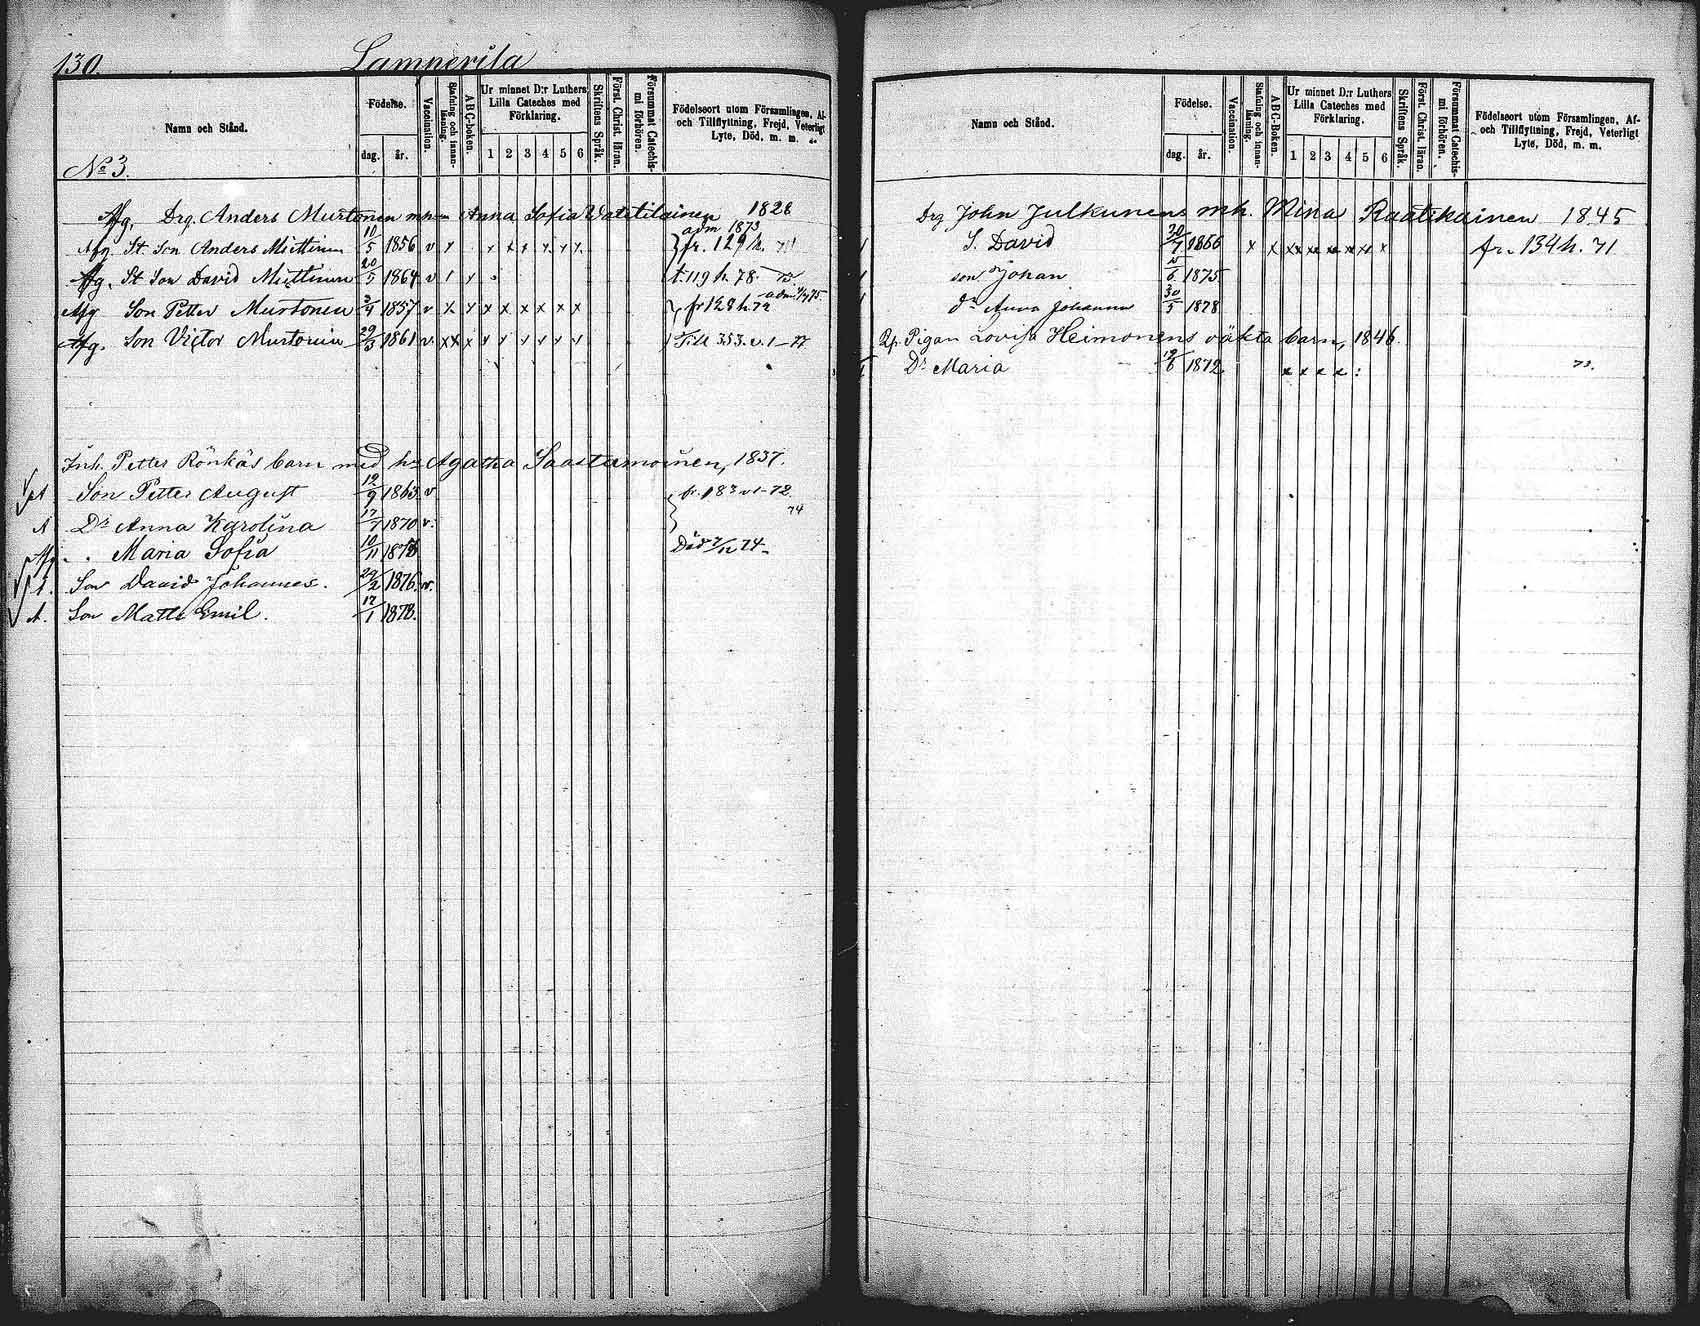 130. Lamperila
Namn och Stånd.
Födelse.
dag. år.
Vaccination.
Stafning och innanläsning.
A B C-boken.
Ur minnet D:r Luthers Lilla Cateches med Förklaring.
1 2 3 4 5 6
Skriftens Språk.
Först. Christ. läran.
Försummat Catechismi förhören.
Födelseort utom Församlingen, Af- och Tillflyttning, Frejd, Veterligt Lyte, Död, m. m.
No 3.
Afg. Drg. Anders Murtonen m h Anna Sofia 1828
Afg. St. Son Anders Miettinen 10/5 1856 v x x x x x x x adm 1873 fr. 129 h. 71
Afg. St. Son David Miettinen 20/5 1864 v t. 119 h. 78
Afg Son Petter Murtonen 3/4 1857 v x x x x x x x x fr 128 h. 72
Afg. Son Victor Murtonen 29/3 1861 v. xx x x x x x x x Till 353. v. 1 – 77
Inh. Petter Rönkäs barn med h Agatha Saastamoinen, 1837.
Son Petter August 12/9 1863 v fr. 183 v 1–72
A Dr Anna Karolina 17/7 1870 v. 74
Afg „ Maria Sofia 10/11 1873 Död 7/12 74
Son David Johannes. 29/2 1876 v.
A. Son Matts Emil. 17/1 1878.
Namn och Stånd.
Födelse.
dag. år.
Vaccination.
Stafning och innanläsning.
A B C-Boken.
Ur minnet D:r Luthers Lilla Cateches med Förklaring.
1 2 3 4 5 6
Skriftens Språk.
Först. Christ. läran.
Försummat Catechismi förhören.
Födelseort utom Församlingen, Af- och Tillflyttning, Frejd, Veterligt Lyte, Död, m. m.
Drg John Julkunens m h. Mina Raatikainen 1845
S. David 20/7 1866 x x xx xx x x x x fr. 134 h. 71
son Johan 1875
dr Anna Johanna 30/5 1878
Pigan Lovisa Heimonens oäkta barn, 1846.
Dr Maria 12/6 1872 x x x x : 73.